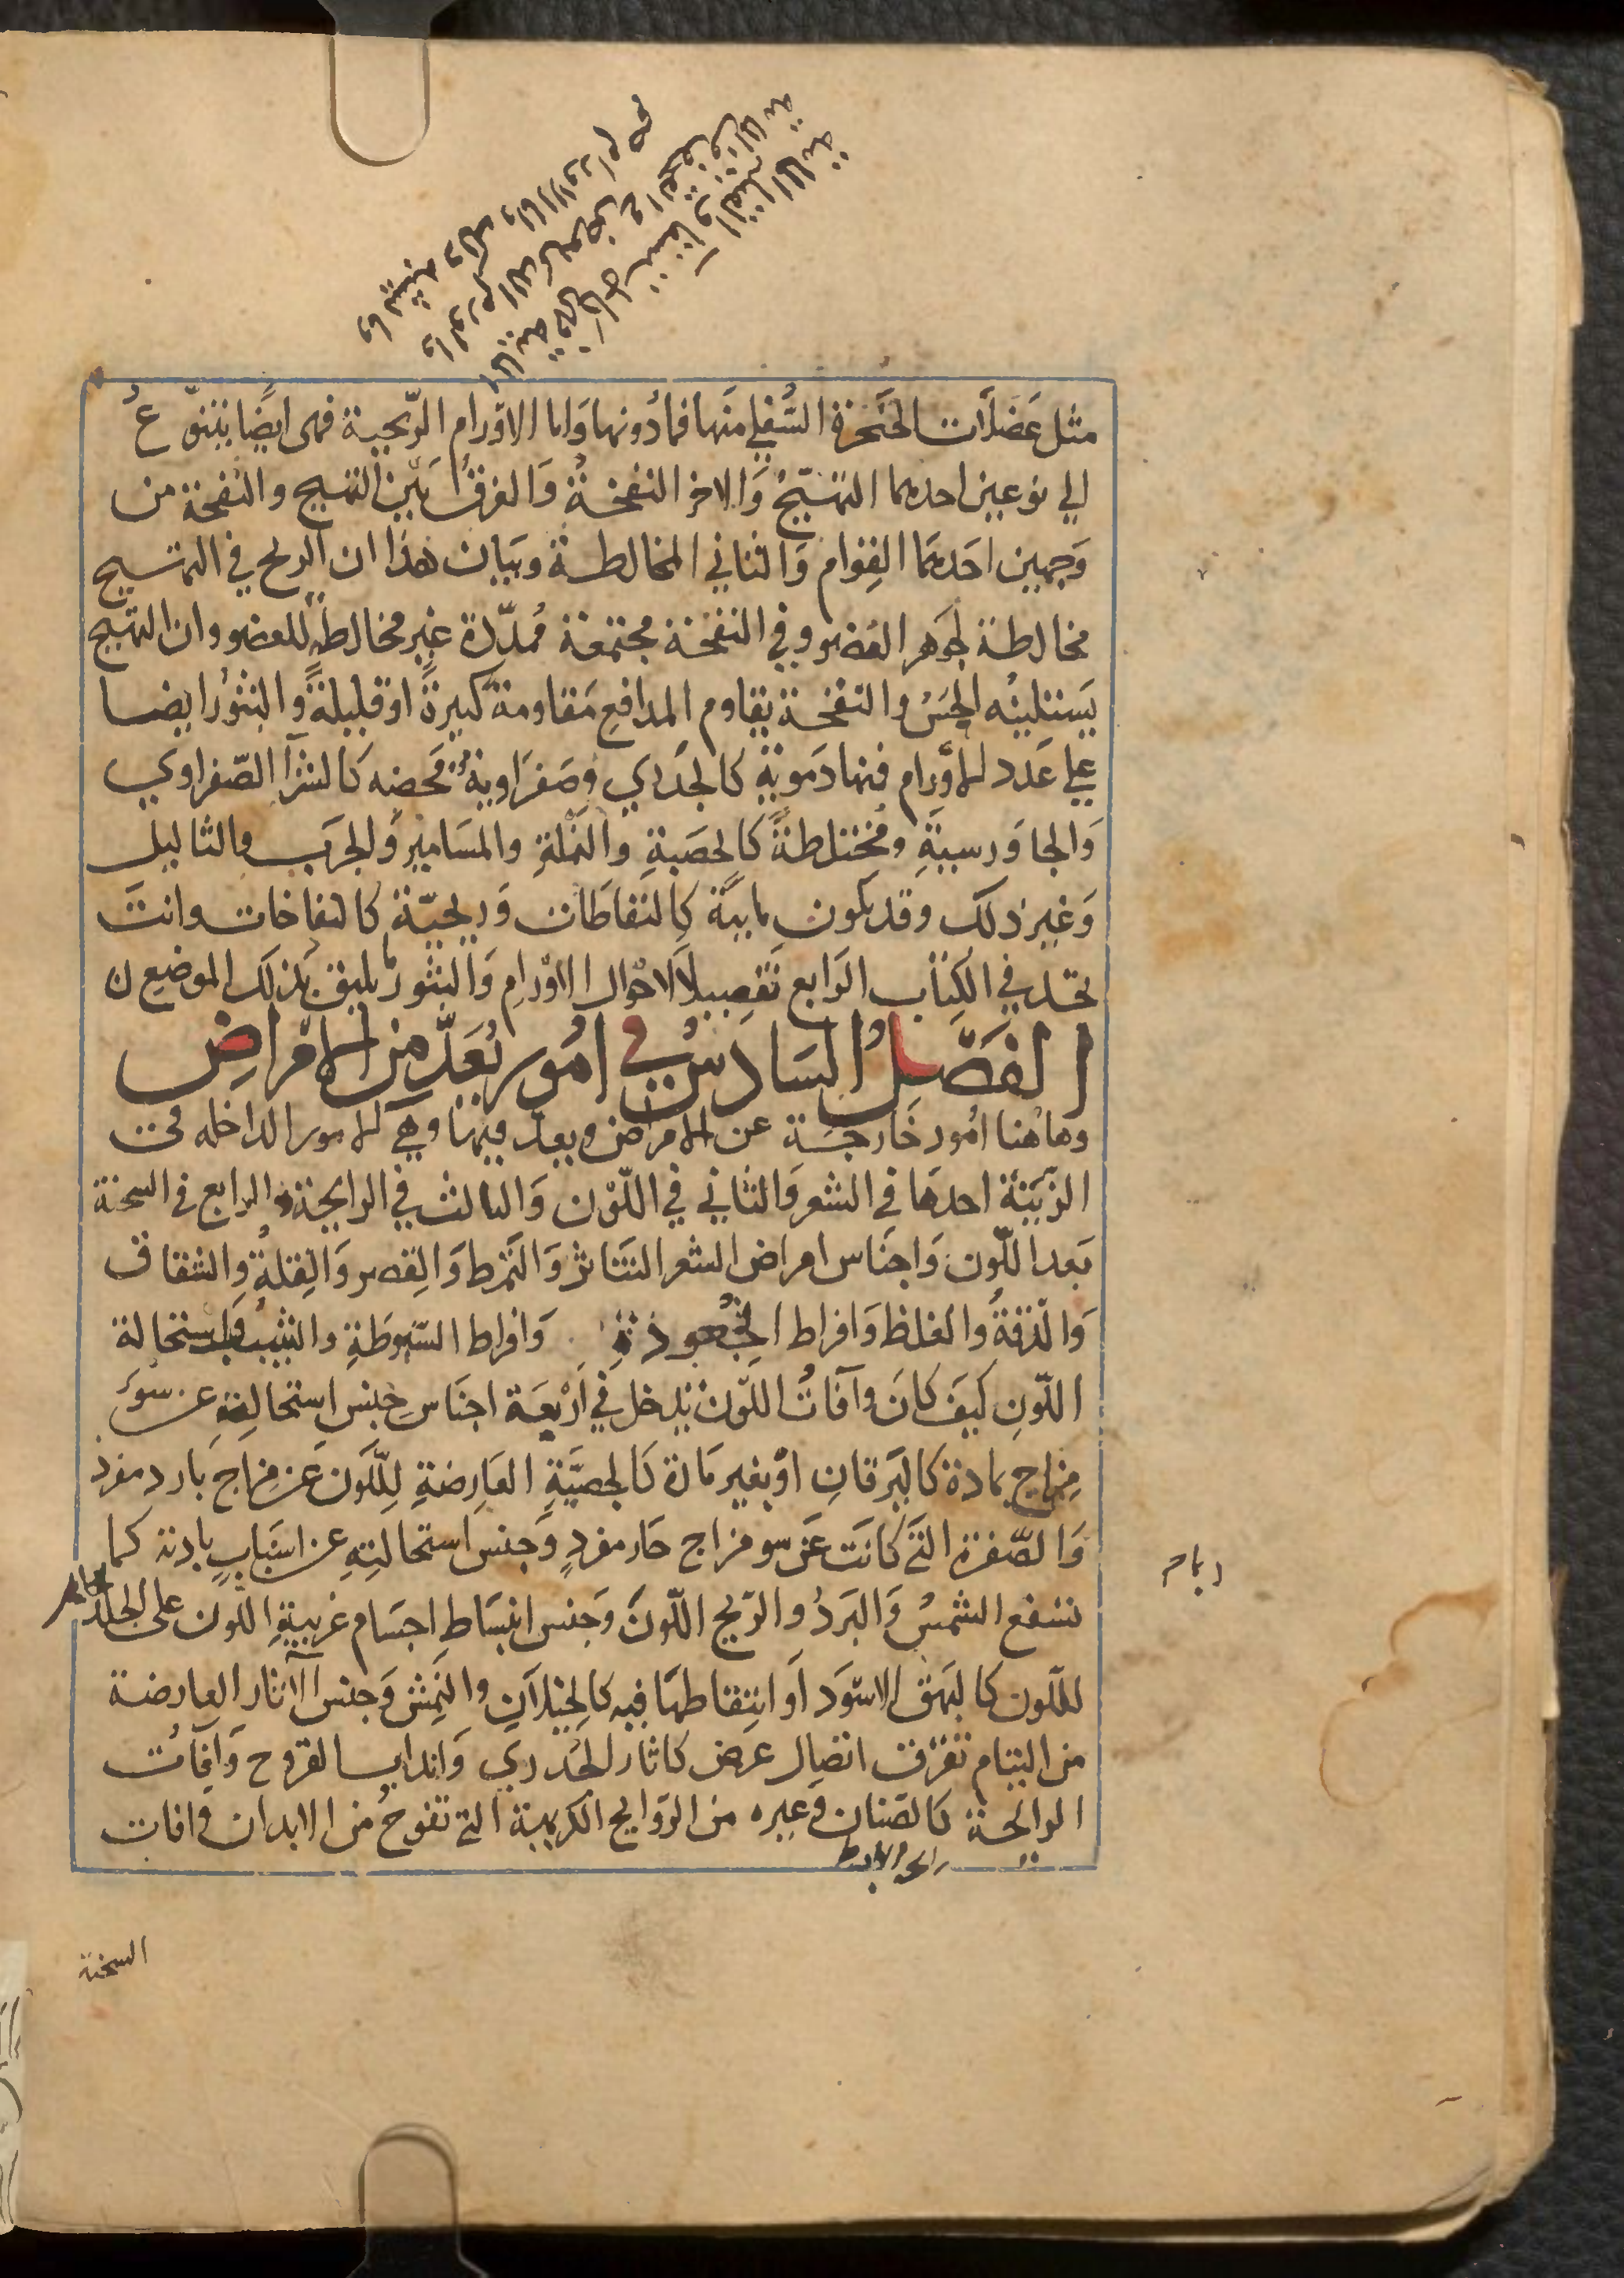 مثل عَضَلَات الحَنجَرة السُّفلي منَها فمادُونها وَاما الاوَّرام الرّيحية فهى ايضًا يتنوّع
الي نوعين احدهما التهَيّجُ وَالاخر النفخةُ وَالفرقُ بَيْنَ التهيج والنفخة من
وَجهين احَدهَما القِوام وَالثاني المخالطة وبَيان هذا ان الريح في التهيج
مخالطة لجوهر العضو وفي النفخة مجتمعة مُمدّدة غير مخالطة للعضو وان التهيج
يَستلينُه الحِسُّ والنفخة يقاوم المدافع مَقاومة كبيرةً او قليلةً والبثورُ ايضا
علي عَدد الاورام فمنها دَمويةٌ كالجَدَري وصَفرَاويةٌ مَحضه كالشرَا الصّفراوي
وَالجاوَرسيةِ ومُختلطةً كالحصَبةِ والنّملةِ والمسَامير وَالجرَب والثاليل
وَغير ذلك وقد يكون مايية كالنفاطَات وَريحيّة كالنفاخات وانتَ
تجد في الكِتاب الرَابع تَفصيلاً لاحْوال الاوْرامِ وَالبثور يليق بَذلَك الموضع ن
الفصَّلُ السَادسُ في امُور تُعَدّ من الامْراض
وهاهُنا امُور خارجَة عن الامراض ويعد فيها وهي الامور الداخله في
الزّينة احدهَا في الشعر وَالثاني في اللّوْن وَالثالث في الرايحة والرابع في السحنة
بَعد اللّون وَاجناس امراض الشعر التناثرُ وَالتمرط وَالقِصر وَالقِلةُ والشقاق
وَالدّقةُ والغلظ وَافراط الجُعودَة وَافراط السّبوطَةِ والشيبُ وَاستحالة
اللّونِ كيَف كانَ وآفاتُ اللّون يَدخل في اَرْبعَة اجنَاسِ جنس استحالتِهِ عن سُوءِ
مِزاج بمادة كاليَرقانِ اوْ بغير مَادة كَالجصّيَّةِ العَارِضةِ لِلّلَون عَن مزاج بَارد مفرد
وَالصّفرة التَي كانَت عَن سو مزاج حَار مفردٍ وَجنس استحالتِهِ عن اسبَابٍ بادية كما
تسفع الشمسُ وَالبَردُ والرّيح اللّونَ وَجنس انبسَاطِ اجسَام غريبةِ اللّون على الجلد
لللّون كالبهق الاسْوَد اَو انتِقاطهَا فيه كالخيلاَنِ والنَمش وَجنس الآثار العارضة
من التيام تفرّق اتصال عرض كاثار الجُدري وَاندابِ القروح وَآفاتُ
الرايحة كالصّنان وَغيره من الرّوَايح الكريهة التي تفوحُ من الابدان وَافات
السحنة